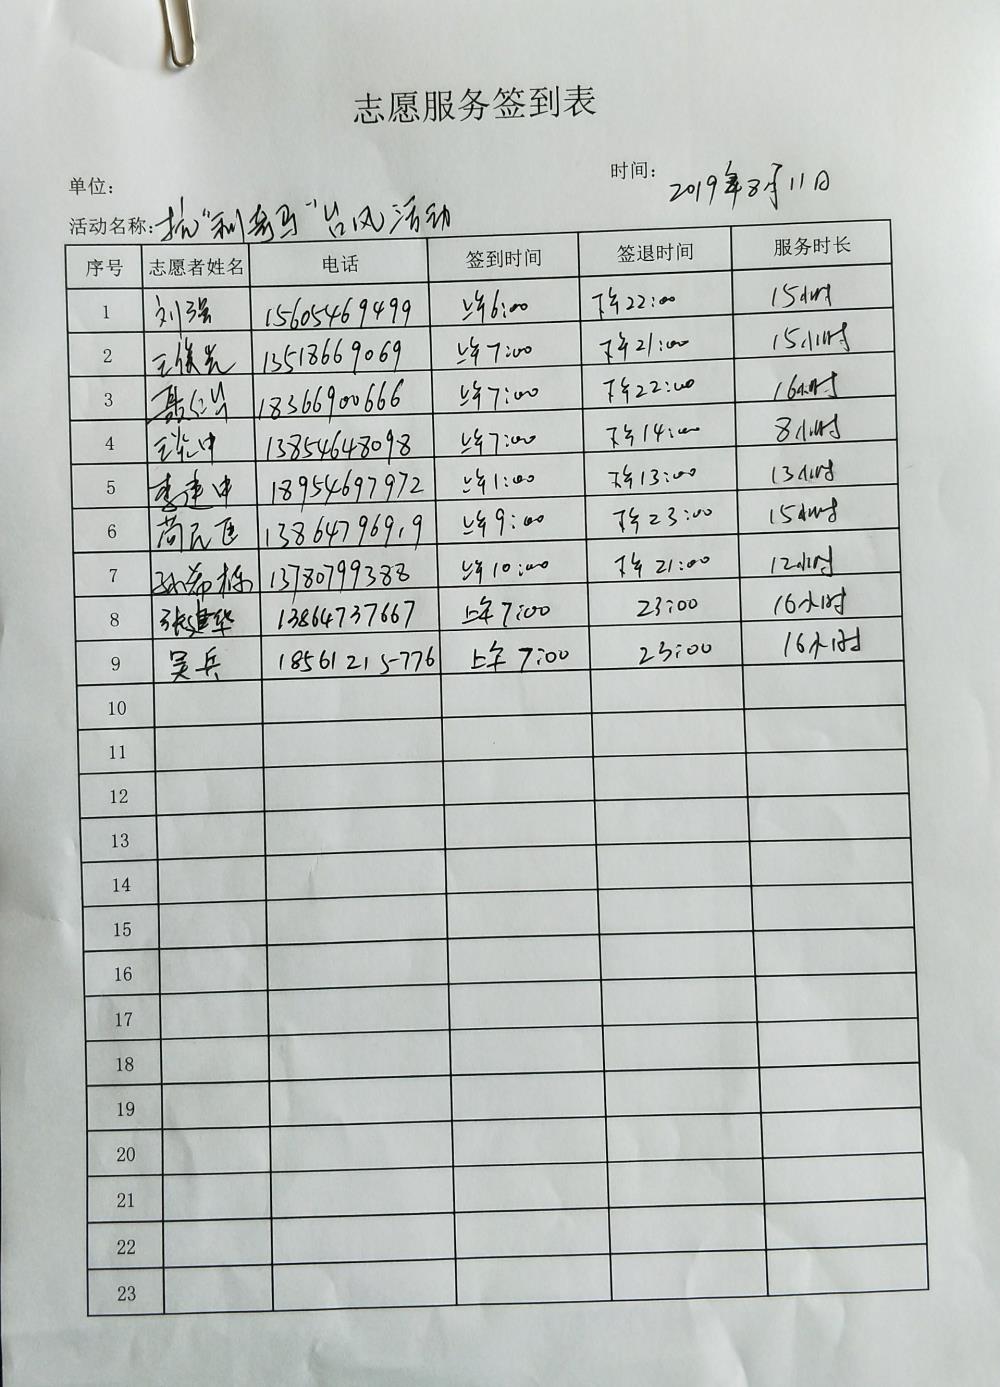 志愿服务签到表
单位： 时间： 2019年8月11日
活动名称：抗"利奇马"台风活动
序号 志愿者姓名 电话 签到时间 签退时间 服务时长
1 刘强 15605469499 上午6:00 下午22:00 15小时
2 王俊先 13518669069 上午7:00 下午21:00 15小时
3 18366900666 上午7:00 下午22:00 16小时
4 13854648098 上午7:00 下午14:00 8小时
5 李建中 18954697972 上午1:00 下午13:00 13小时
6 13864796919 上午9:00 下午23:00 15小时
7 孙希栋 13780799388 上午10:00 下午21:00 12小时
8 张建华 13864737667 上午7:00 23:00 16小时
9 吴兵 18561215776 上午7:00 23:00 16小时
10
11
12
13
14
15
16
17
18
19
20
21
22
23